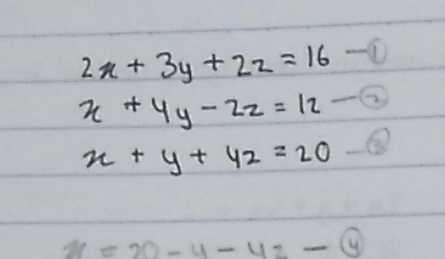 2x + 3y + 2z = 16 — ①
x + 4y - 2z = 12 — ②
x + y + 4z = 20 — ③
x = 20 - y - 4z — ④